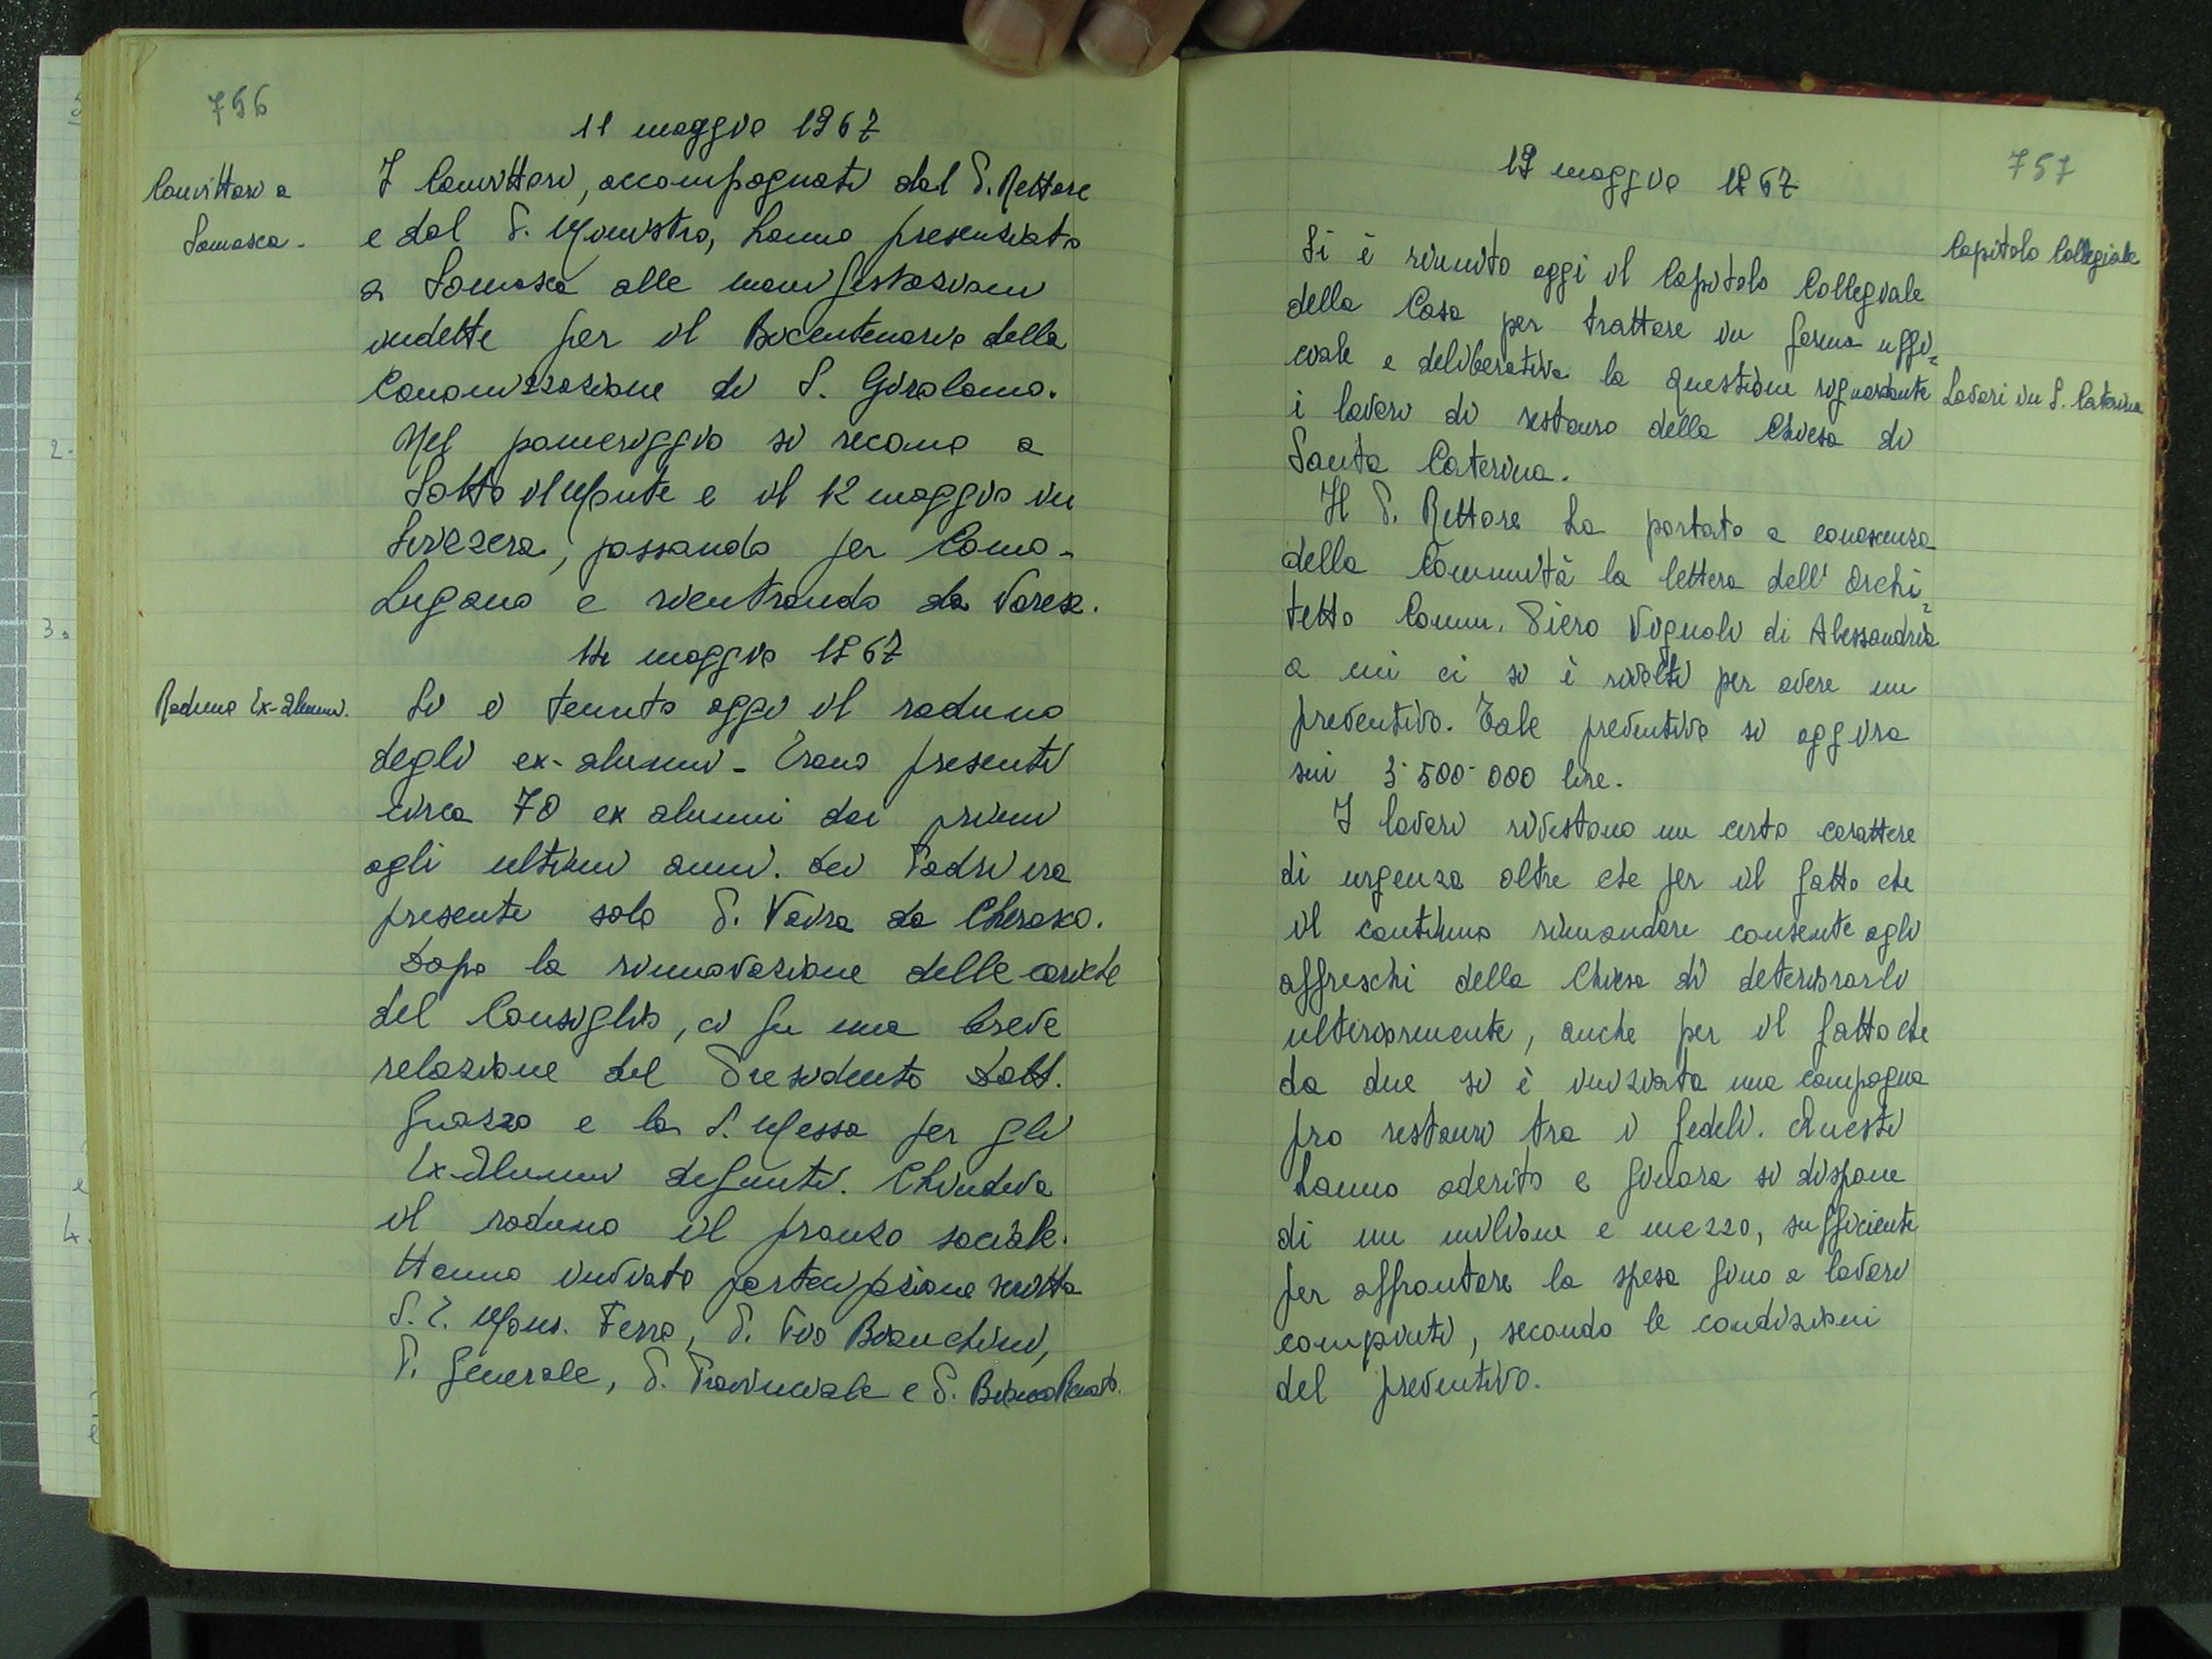 756
11 maggio 1967
Convittori a
Somasca.
I Convittori, accompagnati dal P. Rettore
e dal P. Ministro, hanno presenziato
a Somasca alle manifestazioni
indette per il Bicentenario della
Canonizzazione di S. Girolamo.
Nel pomeriggio si recano a
Sotto il Monte e il 12 maggio in
Svizzera, passando per Como-
Lugano e rientrando da Varese.
14 maggio 1967
Raduno Ex-Alunni.
Si è tenuto oggi il raduno
degli ex-alunni - Erano presenti
circa 70 ex alunni dai primi
agli ultimi anni. dei Padri era
presente solo P. Vaira da Cherasco.
Dopo la rinnovazione delle cariche
del Consiglio, ci fu una breve
relazione del Presidente Dott.
Guazzo e la S. Messa per gli
Ex-Alunni defunti. Chiudeva
il raduno il pranzo sociale.
Hanno inviato partecipazione scritta
S. E. Mons. Ferro, P. Pio Bianchini,
P. Generale, P. Provinciale e P. Bianco Renato.
757
19 maggio 1967
Capitolo Collegiale
Si è riunito oggi il Capitolo Collegiale
della Casa per trattare in forma uffi=
ciale e deliberativa la questione riguardante
Lavori in S. Caterina
i lavori di restauro della Chiesa di
Santa Caterina.
Il P. Rettore ha portato a conoscenza
della Comunità la lettera dell' Archi=
tetto Comm. Piero Vignoli di Alessandria
a cui ci si è rivolti per avere un
preventivo. Tale preventivo si aggira
sui 3·500·000 lire.
I lavori rivestono un certo carattere
di urgenza oltre che per il fatto che
il continuo rimandare consente agli
affreschi della Chiesa di deteriorarsi
ulteriormente, anche per il fatto che
da due si è iniziata una campagna
pro restauri tra i fedeli. Questi
hanno aderito e finora si dispone
di un milione e mezzo, sufficiente
per affrontare la spesa fino a lavori
compiuti, secondo le condizioni
del preventivo.